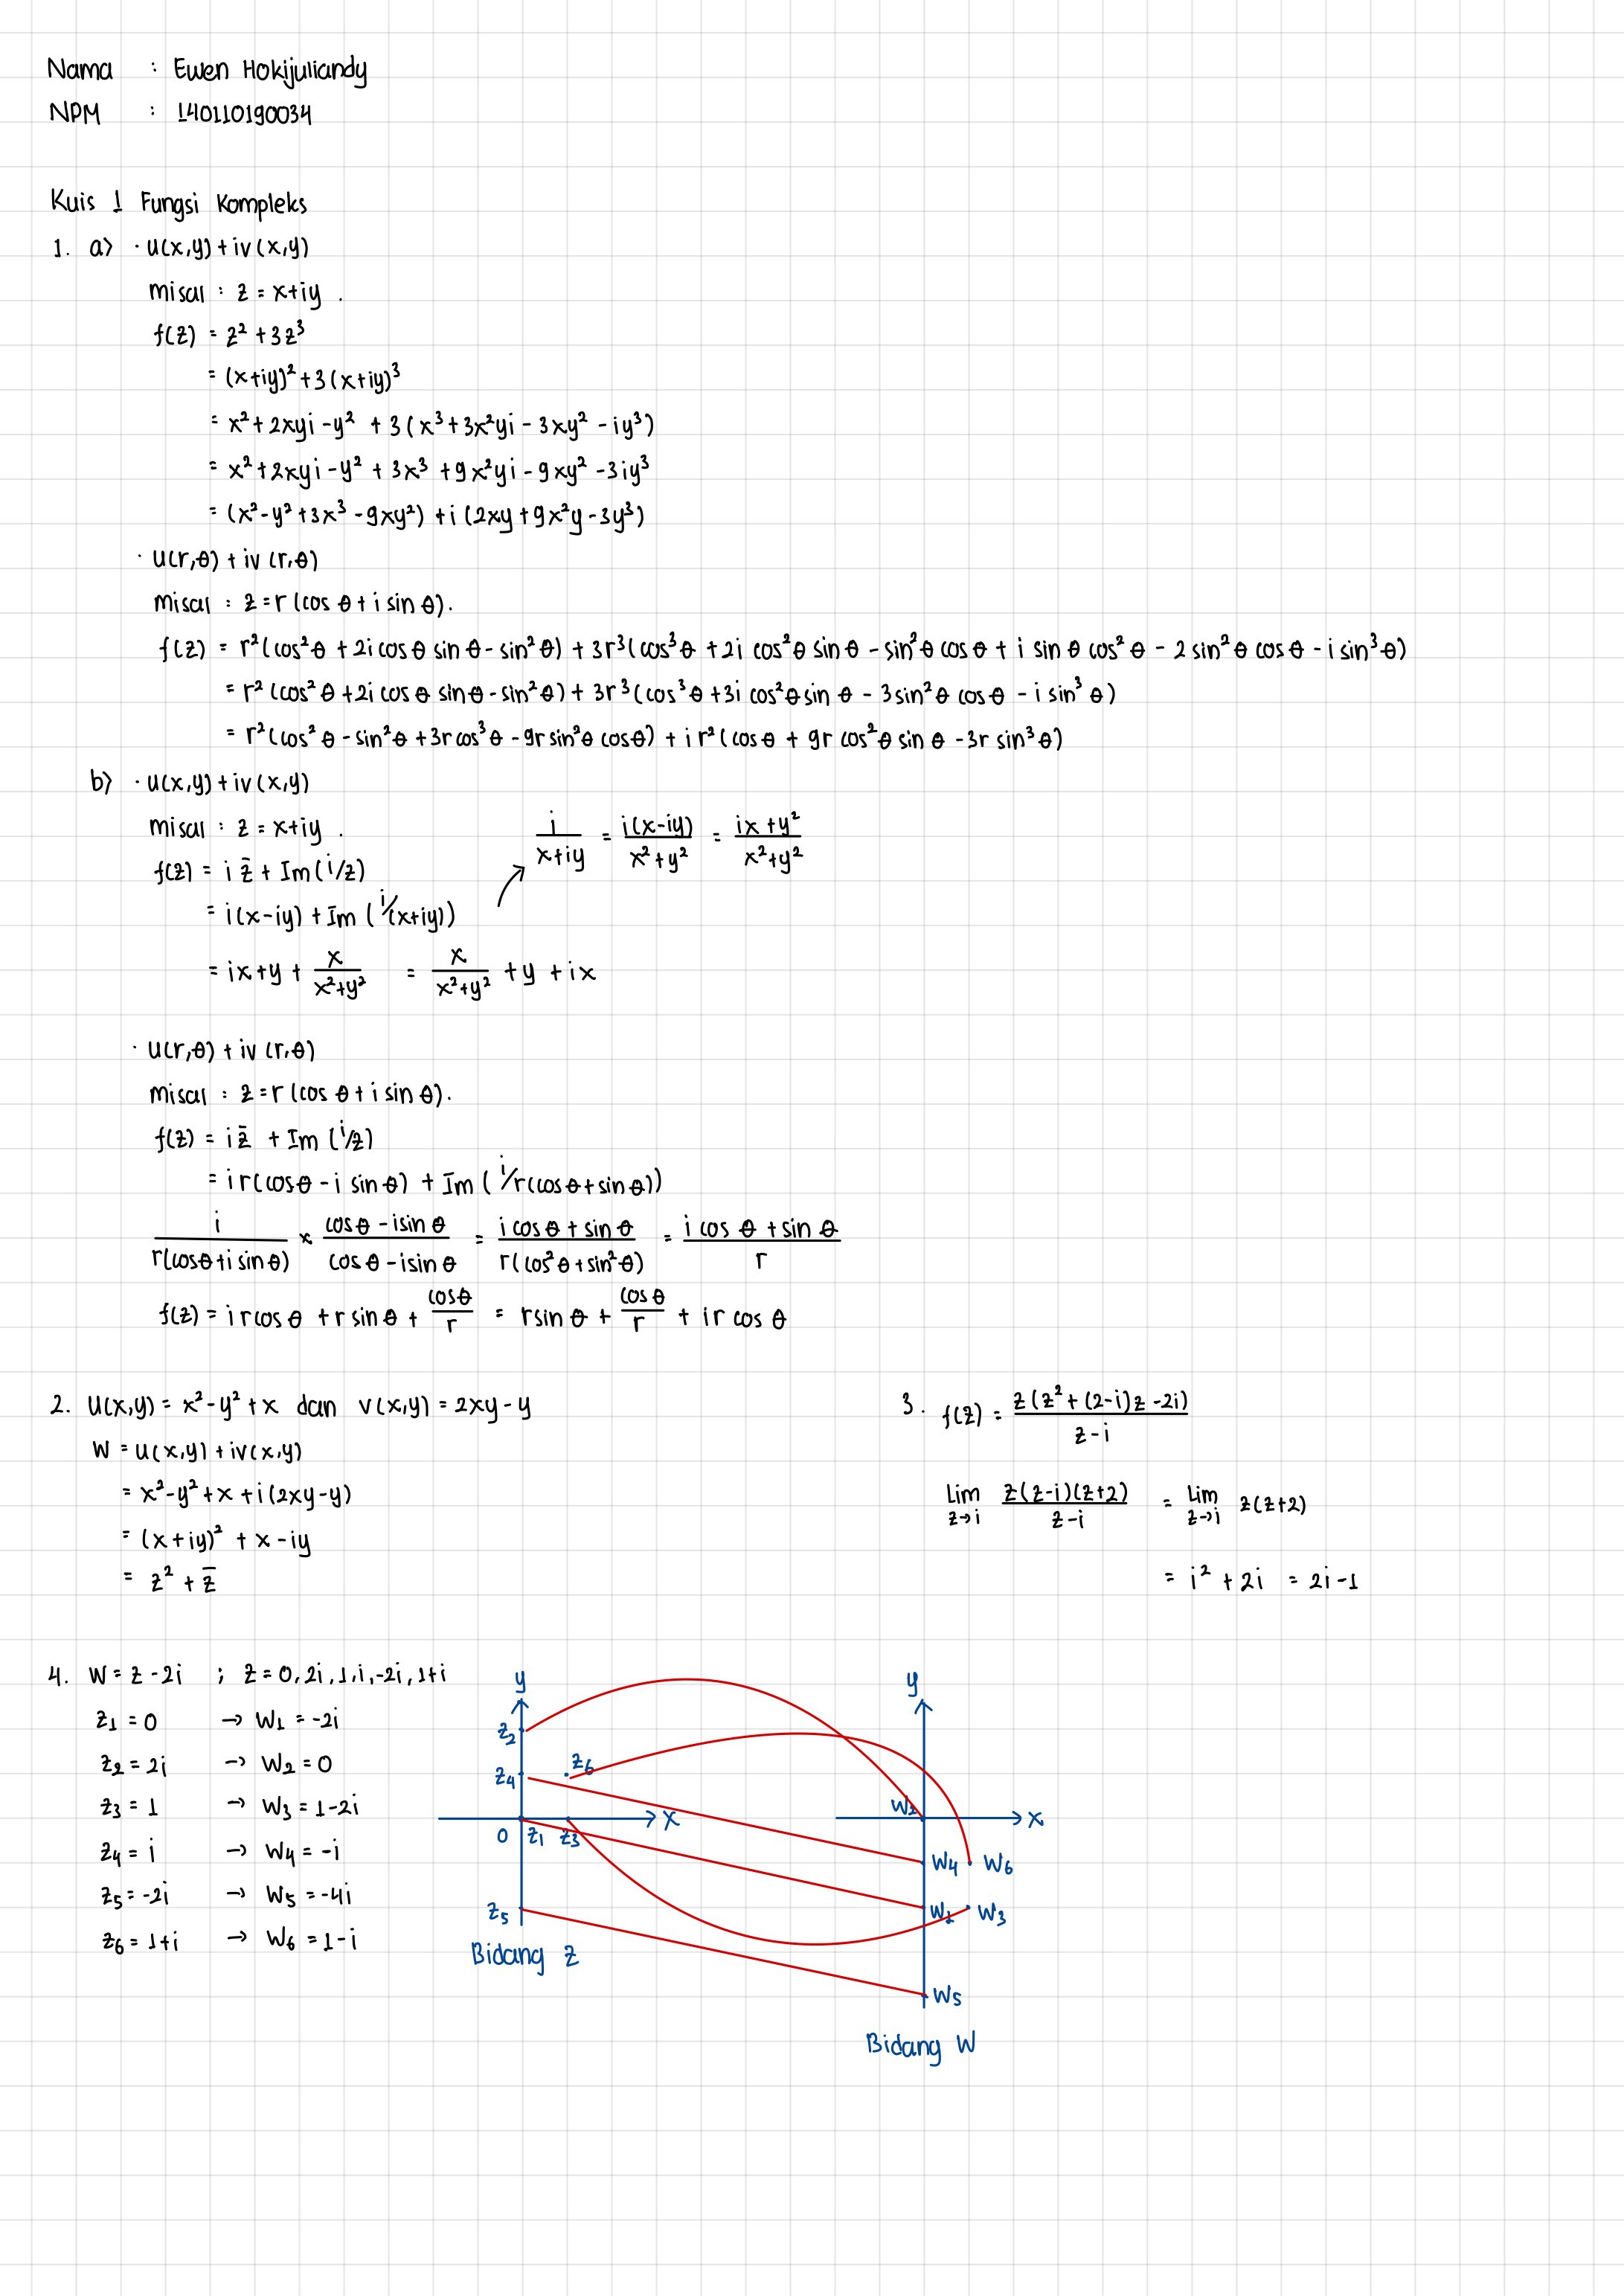 Nama : Ewen Hokijuliandy
NPM : 140110190034
Kuis 1 Fungsi Kompleks
1. a) · u(x,y) + iv(x,y)
misal : z = x+iy .
f(z) = z² + 3z³
= (x+iy)² + 3(x+iy)³
= x² + 2xyi - y² + 3(x³ + 3x²yi - 3xy² - iy³)
= x² + 2xyi - y² + 3x³ + 9x²yi - 9xy² - 3iy³
= (x² - y² + 3x³ - 9xy²) + i(2xy + 9x²y - 3y³)
· u(r,θ) + iv(r,θ)
misal : z = r(cos θ + i sin θ).
f(z) = r²(cos²θ + 2i cos θ sin θ - sin²θ) + 3r³(cos³θ + 2i cos²θ sin θ - sin²θ cos θ + i sin θ cos²θ - 2 sin²θ cos θ - i sin³θ)
= r²(cos²θ + 2i cos θ sin θ - sin²θ) + 3r³(cos³θ + 3i cos²θ sin θ - 3 sin²θ cos θ - i sin³θ)
= r²(cos²θ - sin²θ + 3r cos³θ - 9r sin²θ cos θ) + i r²(cos θ + 9r cos²θ sin θ - 3r sin³θ)
b) · u(x,y) + iv(x,y)
misal : z = x+iy .
i/(x+iy) = i(x-iy)/(x²+y²) = (ix+y²)/(x²+y²)
f(z) = i z̄ + Im(i/z)
= i(x-iy) + Im(i/(x+iy))
= ix + y + x/(x²+y²) = x/(x²+y²) + y + ix
· u(r,θ) + iv(r,θ)
misal : z = r(cos θ + i sin θ).
f(z) = i z̄ + Im(i/z)
= ir(cos θ - i sin θ) + Im(i/r(cos θ + sin θ))
i/(r(cos θ + i sin θ)) × (cos θ - i sin θ)/(cos θ - i sin θ) = (i cos θ + sin θ)/(r(cos²θ + sin²θ)) = (i cos θ + sin θ)/r
f(z) = ir cos θ + r sin θ + cos θ/r = r sin θ + cos θ/r + ir cos θ
2. u(x,y) = x² - y² + x dan v(x,y) = 2xy - y
W = u(x,y) + iv(x,y)
= x² - y² + x + i(2xy - y)
= (x+iy)² + x - iy
= z² + z̄
3. f(z) = z(z² + (2-i)z - 2i)/(z-i)
Lim z→i z(z-i)(z+2)/(z-i) = Lim z→i z(z+2)
= i² + 2i = 2i - 1
4. W = z - 2i ; z = 0, 2i, 1, i, -2i, 1+i
z₁ = 0 → W₁ = -2i
z₂ = 2i → W₂ = 0
z₃ = 1 → W₃ = 1-2i
z₄ = i → W₄ = -i
z₅ = -2i → W₅ = -4i
z₆ = 1+i → W₆ = 1-i
y
z₂
z₄
z₆
x
0 z₁ z₃
z₅
Bidang z
y
W₂
x
W₄ W₆
W₁ W₃
W₅
Bidang W